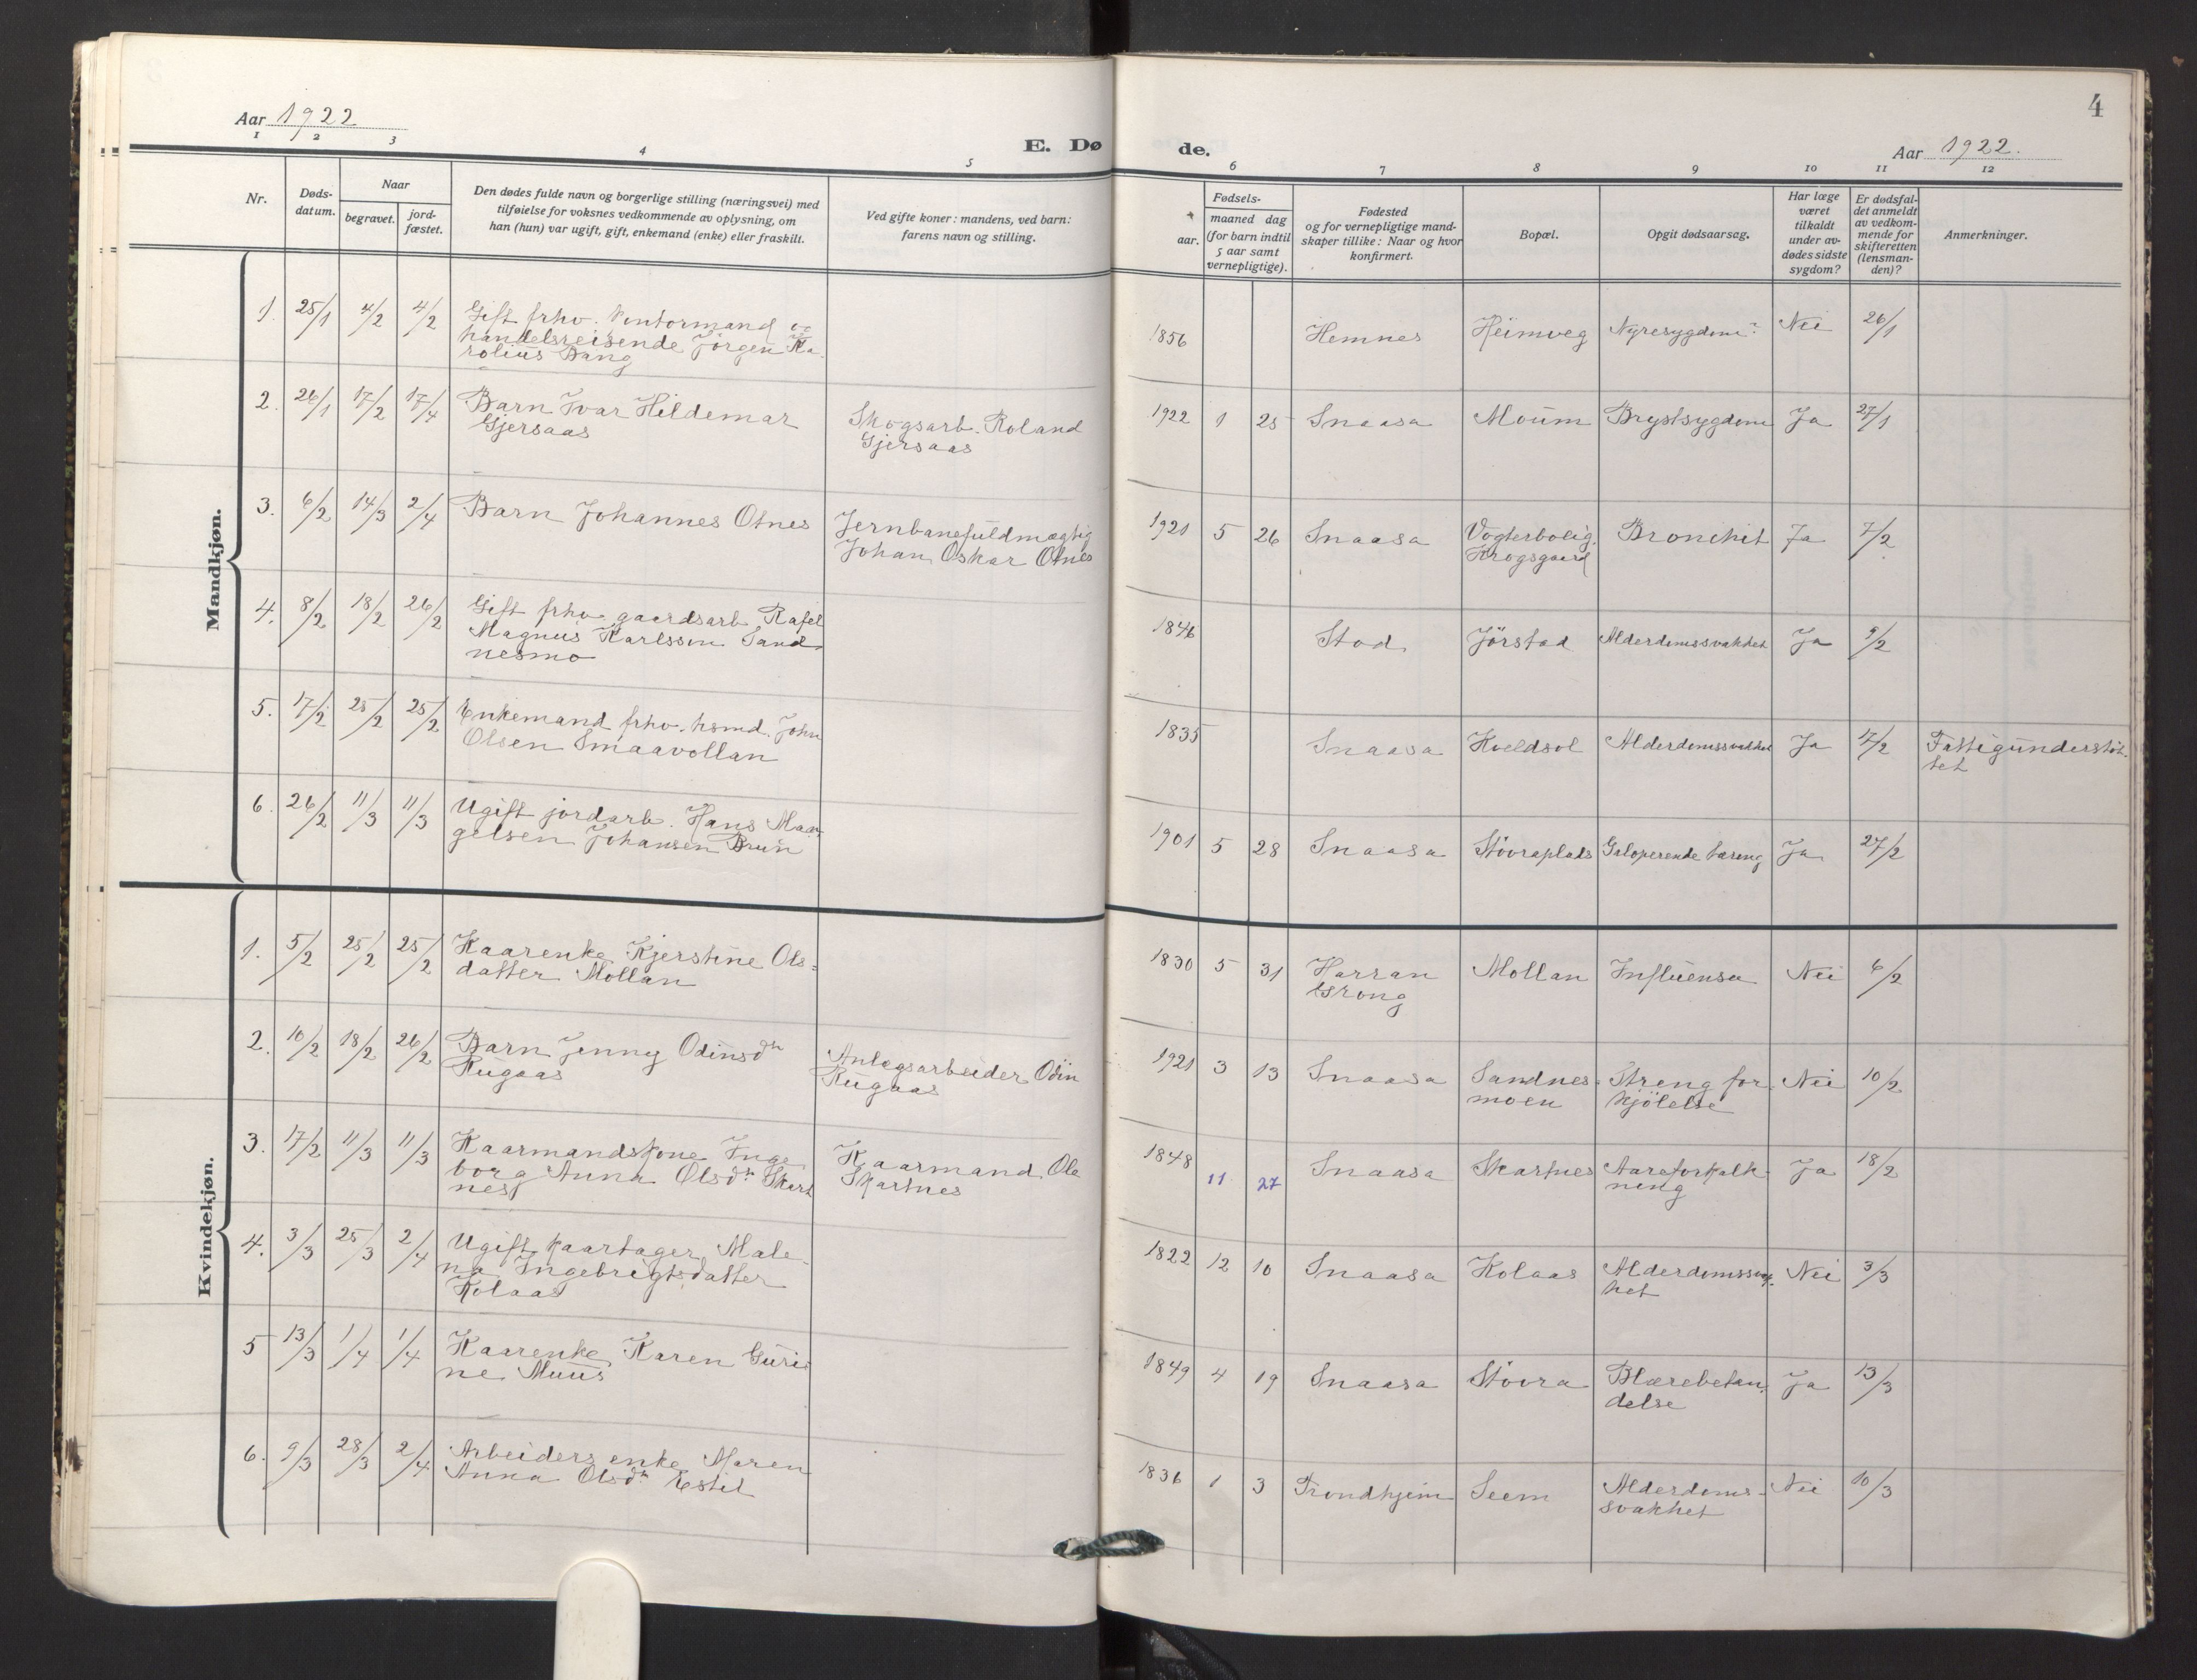 4
Aar 1922
E. Dø
de.
Aar 1922.
1 2 3 4 5 6 7 8 9 10 11 12
Nr.
Døds-
datum.
Naar
begravet.
jord-
fæstet.
Den dødes fulde navn og borgerlige stilling (næringsvei) med
tilføielse for voksnes vedkommende av oplysning, om
han (hun) var ugift, gift, enkemand (enke) eller fraskilt.
Ved gifte koner: mandens, ved barn:
farens navn og stilling.
Fødsels-
aar.
maaned dag
(for barn indtil
5 aar samt
vernepligtige).
Fødested
og for vernepligtige mand-
skaper tillike: Naar og hvor
konfirmert.
Bopæl.
Opgit dødsaarsag.
Har læge
været
tilkaldt
under av-
dødes sidste
sygdom?
Er dødsfal-
det anmeldt
av vedkom-
mende for
skifteretten
(lensman-
den)?
Anmerkninger.
Mandkjøn.
1. 25/1 4/2 4/2 Gift frhv. kontormand og
handelsreisende Jörgen Ka-
rolius Dang
1856 Hemnes Heimveg Nyresygdom? Nei 26/1
2. 26/1 17/2 17/4 Barn Ivar Hildemar
Gjersaas
Skogsarb. Roland
Gjersaas
1922 1 25 Snaasa Moum Brystsygdom Ja 27/1
3. 6/2 14/3 2/4 Barn Johannes Otnes
Jernbanefuldmægtig
Johan Oskar Otnes
1921 5 26 Snaasa Vogterbolig
Krogsgaard
Bronchit Ja 7/2
4. 8/2 18/2 26/2 Gift frhv gaardsarb Rafel
Magnus Karlsson Sand
nesmo
1846 Stod Jörstad Alderdomssvakhet Ja 9/2
5. 17/2 25/2 25/2 Enkemand frhv. hsmd. John
Olsen Smaavollan
1835 Snaasa Kveldsol Alderdomssvakhet Ja 17/2 Fattigunderstöt-
tet
6. 26/2 11/3 11/3 Ugift jordarb. Hans Maa-
gelsen Johansen Brun
1901 5 28 Snaasa Stövraplads Galoperende tæring Ja 27/2
Kvindekjøn.
1. 5/2 25/2 25/2 Kaarenke Kjerstine Ols=
datter Mollan
1830 5 31 Harran
Grong
Mollan Influensa Nei 6/2
2. 10/2 18/2 26/2 Barn Jenny Odinsdtr
Rugaas
Anlægsarbeider Odin
Rugaas
1921 3 13 Snaasa Sandnes-
moen
Streng for
kjölelse
Nei 10/2
3. 17/2 11/3 11/3 Kaarmandskone Inge
borg Anna Olsdtr Skart
nes
Kaarmand Ole
Skartnes
1848 11 27 Snaasa Skartnes Aareforkalk-
ning
Ja 18/2
4. 3/3 25/3 2/4 Ugift kaartager Male-
na Ingebrigtsdatter
Kolaas
1822 12 10 Snaasa Kolaas Alderdomssvak-
het
Nei 3/3
5 13/3 1/4 1/4 Kaarenke Karen Guri-
ne Muus
1849 4 19 Snaasa Stövra Blærebeten-
delse
Ja 13/3
6. 9/3 28/3 2/4 Arbeiders enke Maren
Anna Olsdtr Estil
1836 1 3 Trondhjem Seem Alderdoms-
svakhet
Nei 10/3